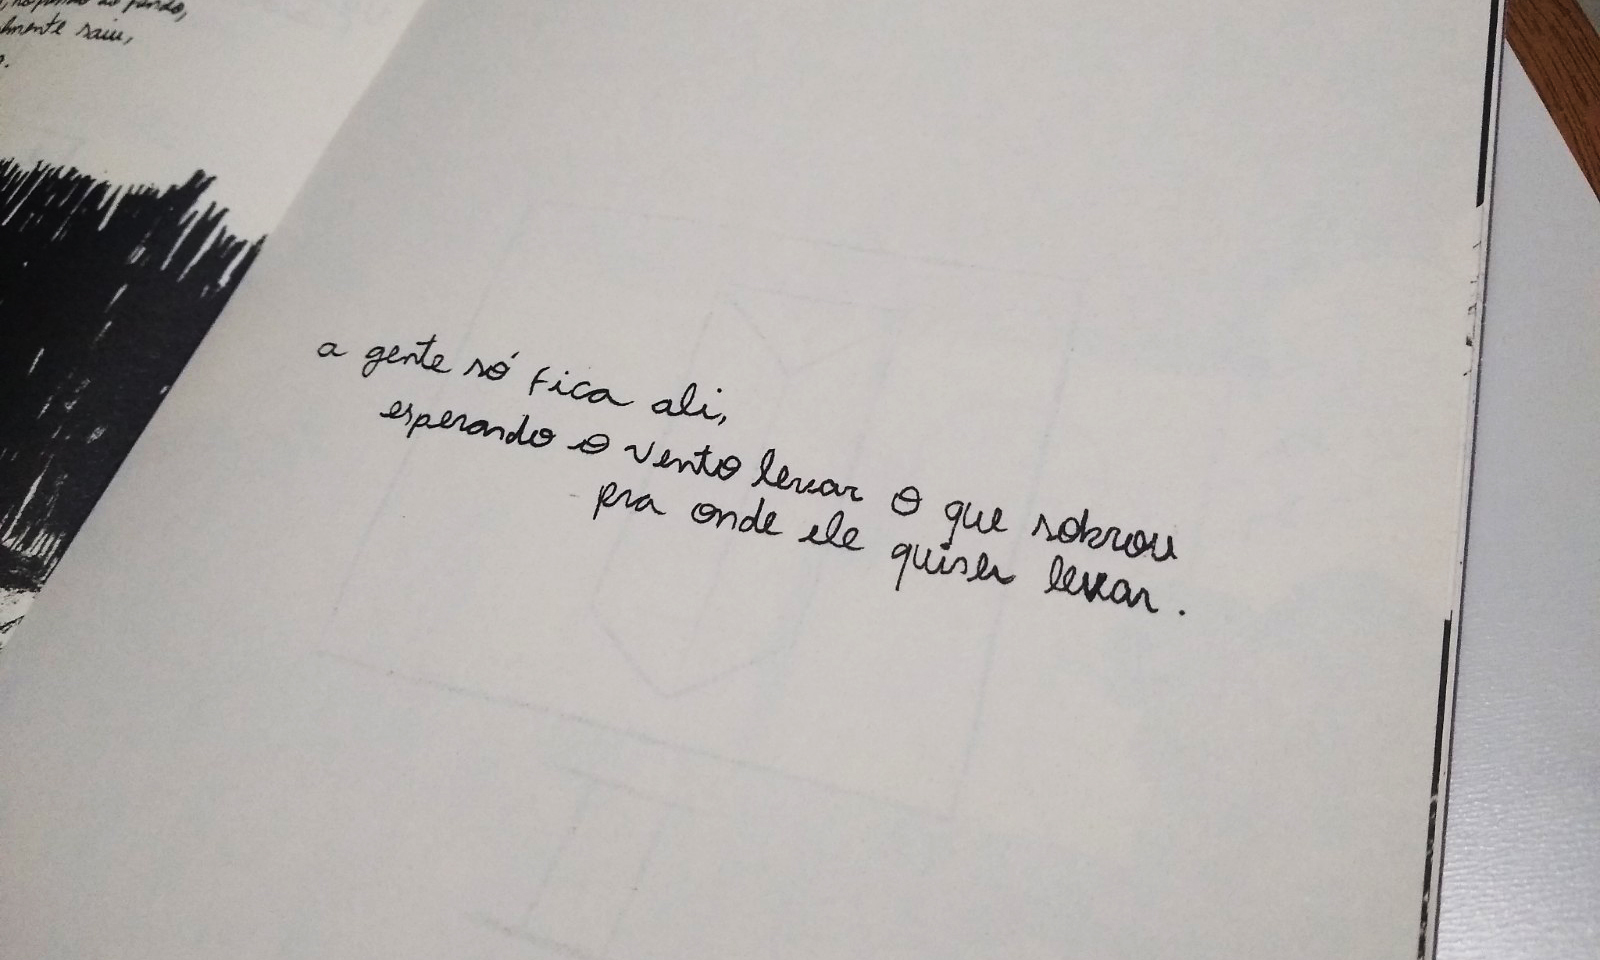 fundo,
saiu,
a gente só fica ali,
esperando o vento levar o que sobrou
pra onde ele quiser levar.